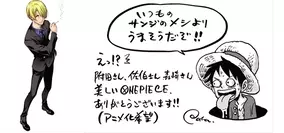 いつもの
サンジのメシより
うまそうだぞ!!
えっ!?
附田さん、佐伯さん、森崎さん
美しいONEPIECE、
ありがとうございます!!
(アニメ化希望)